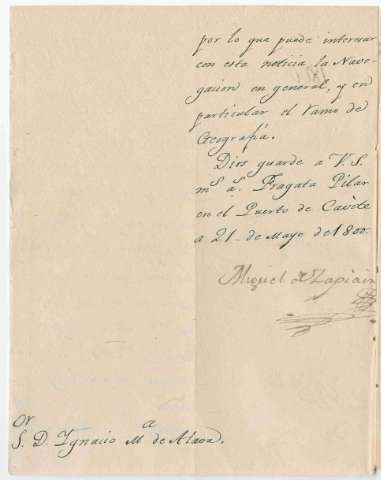 por lo que puede interesar
con esta noticia la Nave-
gacion en general, y en
particular el ramo de
Geografia.
Dios guarde a V.S.
m.s a.s Fragata Pilar
en el Puerto de Cavite
a 21 de Mayo de 1800.
Miguel de Zapiain
or
S. D. Ygnacio M.a de Alava.